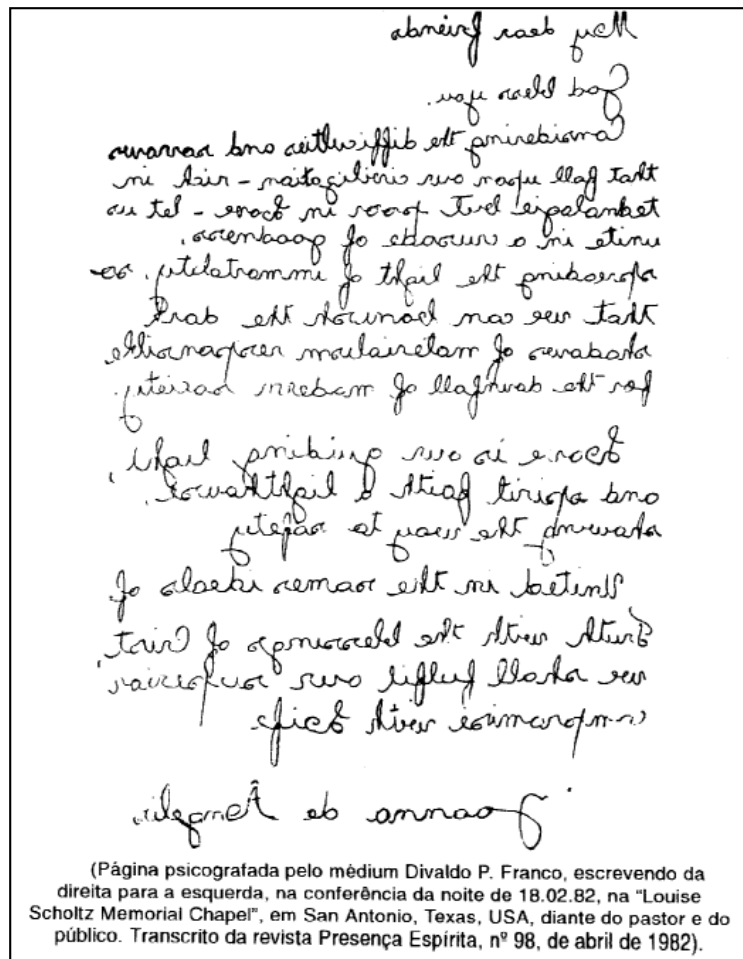 My dear friends
God bless you.
Considering the difficulties and sorrows
that fall upon our civilization - rich in
but poor in love - let us
unite in a crusade of goodness,
spreading the light of immortality, so
that we can banish the dark
shadows of materialism
for the downfall of modern society.
Love is our guiding light,
and spirit faith a lighthouse,
showing the way to safety
United in the same ideals of
Truth with the blessings of Crist
we shall fulfil our superior
with Life
Joanna de Ângelis.
(Página psicografada pelo médium Divaldo P. Franco, escrevendo da
direita para a esquerda, na conferência da noite de 18.02.82, na “Louise
Scholtz Memorial Chapel”, em San Antonio, Texas, USA, diante do pastor e do
público. Transcrito da revista Presença Espírita, nº 98, de abril de 1982).